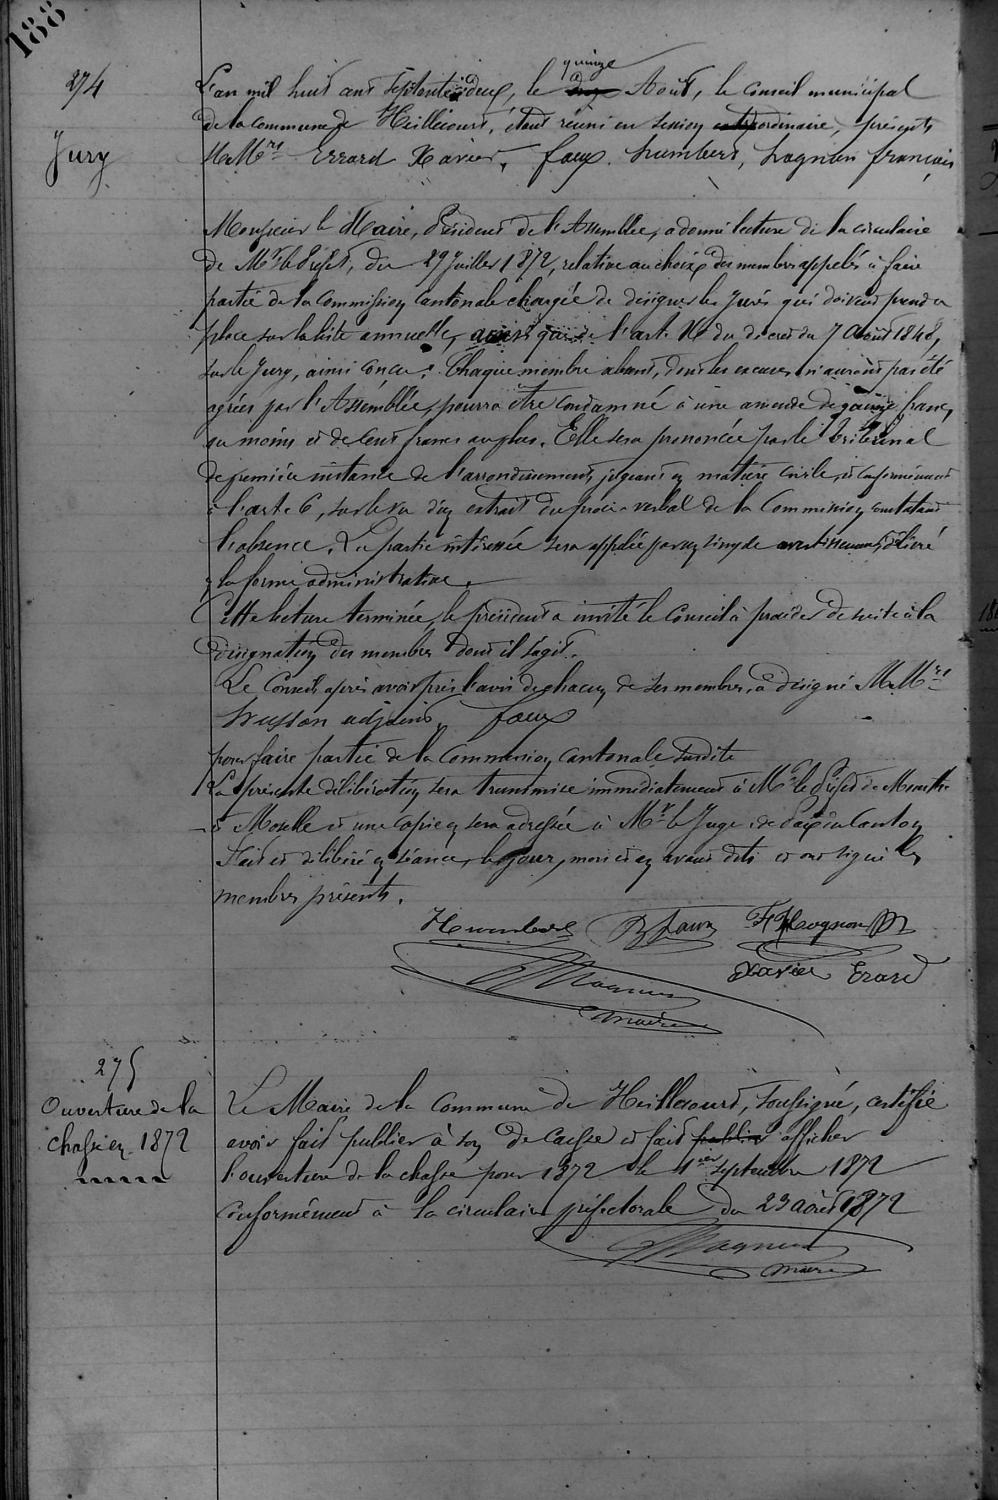 188
274
Jury
quinze
L'an mil huit cent septante deux, le deux Août, le Conseil municipal
de la commune de Heillecourt, étant réuni en session extraordinaire, présents
M.M.rs Errard Xavier, Faux, Humbert, Hognon François
Monsieur le Maire, Président de l'Assemblée, a donné lecture de la circulaire
de Mr le Préfet, du 29 Juillet 1872, relative au choix des membres appelés à faire
partie de la Commission Cantonale chargée de désigner les Jurés qui doivent prendre
place sur la liste annuelle, ainsi que de l'art. du décret du 7 Août 1848,
sur le Jury, ainsi conçu: Chaque membre absent, dont les excuses n'auront pas été
agréées par l'Assemblée, pourra être condamné à une amende de quinze francs
au moins et de cent francs au plus. Elle sera prononcée par le tribunal
de première instance de l'arrondissement, jugeant en matière civile, et conformément
à l'art. 6, sur le vu d'un extrait du procès-verbal de la Commission constatant
l'absence. La partie intéressée sera appelée par un simple avertissement, délivré
en la forme administrative.
Cette lecture terminée, le président a invité le Conseil à procéder de suite à la
désignation des membres dont il s'agit.
Le Conseil, après avoir pris l'avis de chacun de ses membres, a désigné M.M.rs
Husson adjoint, Faux
pour faire partie de la Commission cantonale susdite
La présente délibération sera transmise immédiatement à Mr le Préfet de Meurthe
et Moselle et une copie en sera adressée à Mr le Juge de Paix du Canton
Fait et délibéré en séance, le jour, mois et an avant dits et ont signé les
membres présents.
Humbert Faux F Hognon
Magnien Xavier Erard
maire
275
Ouverture de la
chasse en 1872
Le Maire de la Commune de Heillecourt, soussigné, certifie
avoir fait publier à son de caisse et fait publier afficher
l'ouverture de la chasse pour 1872 le 1ier septembre 1872
conformément à la circulaire préfectorale du 23 août 1872
Magnien
maire